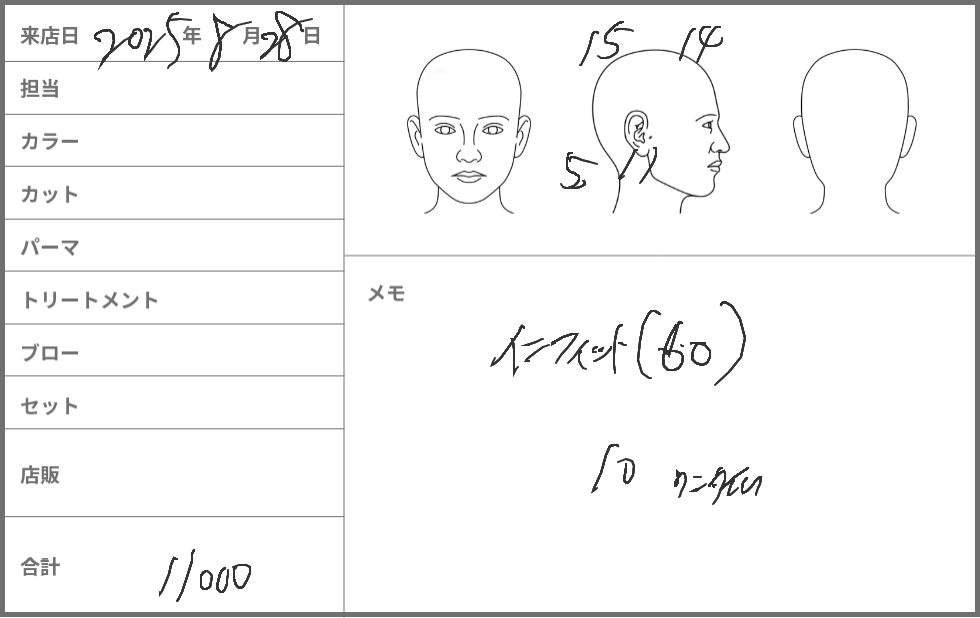 来店日 2025年 8月28日
担当
カラー
カット
パーマ
トリートメント
ブロー
セット
店販
合計 11000
15 14
5
メモ
インフィット(60)
10